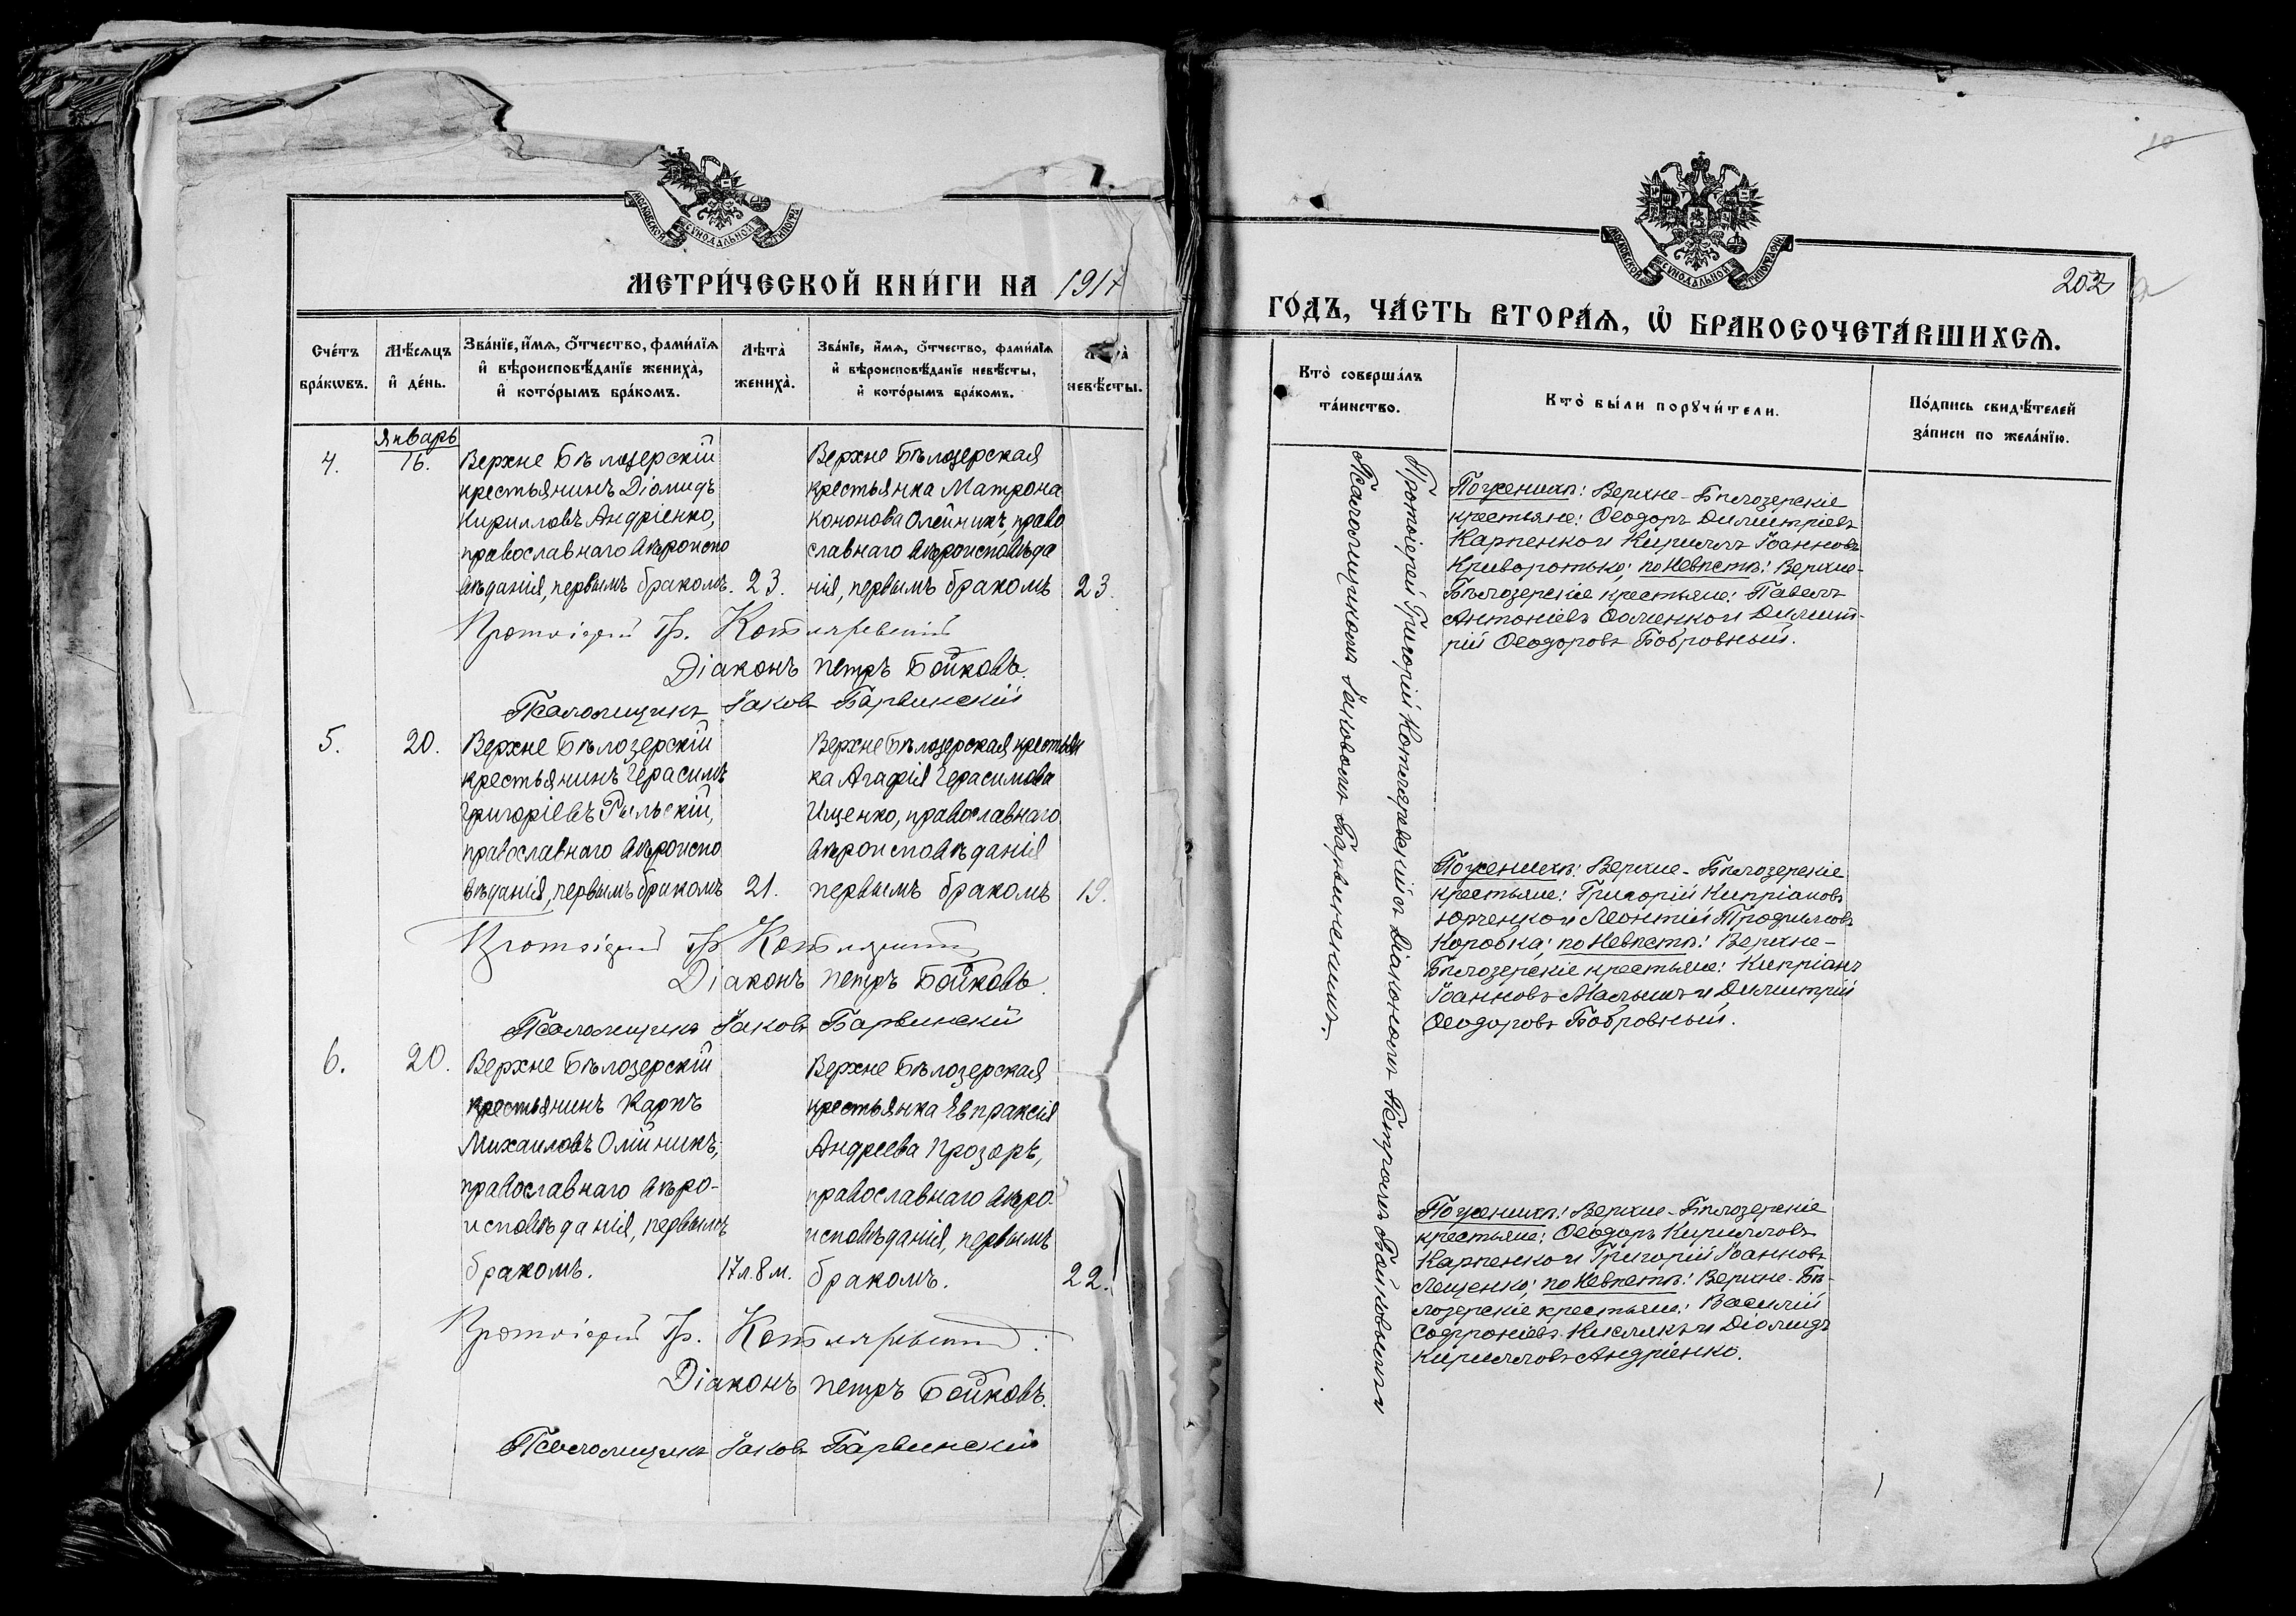 МОСКОВСКОЙ СѴНОДАЛЬНОЙ ТИПОГРА
МЕТРИ́ЧЕСКОЙ КНИ́ГИ НА 1917
Сче́тъ бра́кѡвъ.
Мѣ́сяцъ и҆ де́нь.
Зва́нїе, и҆́мѧ, ѻ҆́тчество, фами́лїѧ и҆ вѣроисповѣ́данїе жениха̀, и҆ кото́рымъ бра́комъ.
Лѣта̀ жениха̀.
Зва́нїе, и҆́мѧ, ѻ҆́тчество, фами́лїѧ и҆ вѣроисповѣ́данїе невѣ́сты, и҆ кото́рымъ бра́комъ.
невѣ́сты.
Январь
4.
16.
Верхне Бѣлозерскій
крестьянинъ Діомидъ
Кирилловъ Андріенко,
православнаго вѣроиспо
вѣданія, первымъ бракомъ.
23.
Верхне Бѣлозерская
крестьянка Матрона
Кононова Олейникъ, право
славнаго вѣроисповѣда
нія, первымъ бракомъ
23.
Протоіерей Гр. Котляревскій
Діаконъ Петръ Бойковъ.
Псаломщикъ Іаковъ Барвинскій
5.
20.
Верхне Бѣлозерскій
крестьянинъ Герасимъ
Григоріевъ Рыльскій,
православнаго вѣроиспо
вѣданія, первымъ бракомъ
21.
Верхне Бѣлозерская крестьян
ка Агафія Герасимова
Ищенко, православнаго
вѣроисповѣданія
первымъ бракомъ
19.
Протоіерей Гр. Котляревскій
Діаконъ Петръ Бойковъ.
Псаломщикъ Іаковъ Барвинскій
6.
20.
Верхне Бѣлозерскій
крестьянинъ Карпъ
Михаиловъ Олійникъ,
православнаго вѣро-
исповѣданія, первымъ
бракомъ.
17 л. 8 м.
Верхне Бѣлозерская
крестьянка Евпраксія
Андреева Прозоръ,
православнаго вѣро-
исповѣданія, первымъ
бракомъ.
22.
Протоіерей Гр. Котляревскій
Діаконъ Петръ Бойковъ.
Псаломщикъ Іаковъ Барвинскій
10
МОСКОВСКОЙ СѴНОДАЛЬНОЙ ТИПОГРАФІИ.
202
ГО́ДЪ, ЧА́СТЬ ВТОРА́Ѧ, Ѽ БРАКОСОЧЕТА́ВШИХСѦ.
Кто̀ соверша́лъ та́инство.
Кто̀ бы́ли порꙋчи́тели.
По́дпись свидѣ́телей за́писи по жела́нїю.
Протоіерей Григорій Котляревскій съ Діакономъ Петромъ Бойковымъ и
Псаломщикомъ Іаковомъ Барвинскимъ.
По женихѣ: Верхне-Бѣлозерскіе
крестьяне: Ѳеодоръ Димитріевъ
Карпенко и Кириллъ Іоанновъ
Криворотько; по невѣстѣ: Верхне-
Бѣлозерскіе крестьяне: Павелъ
Антоніевъ Ѳоменко и Димит-
рій Ѳеодоровъ Бобровный.
По женихѣ: Верхне-Бѣлозерскіе
крестьяне: Григорій Кипріановъ
Юрченко и Леонтій Трофимовъ
Коробка; по невѣстѣ: Верхне-
Бѣлозерскіе крестьяне: Кипріанъ
Іоанновъ Малышъ и Димитрій
Ѳеодоровъ Бобровный.
По женихѣ: Верхне-Бѣлозерскіе
крестьяне: Ѳеодоръ Кирилловъ
Карпенко и Григорій Іоанновъ
Лещенко; по невѣстѣ: Верхне-Бѣ-
лозерскіе крестьяне: Василій
Софроніевъ Кислякъ и Діомидъ
Кирилловъ Андріенко.